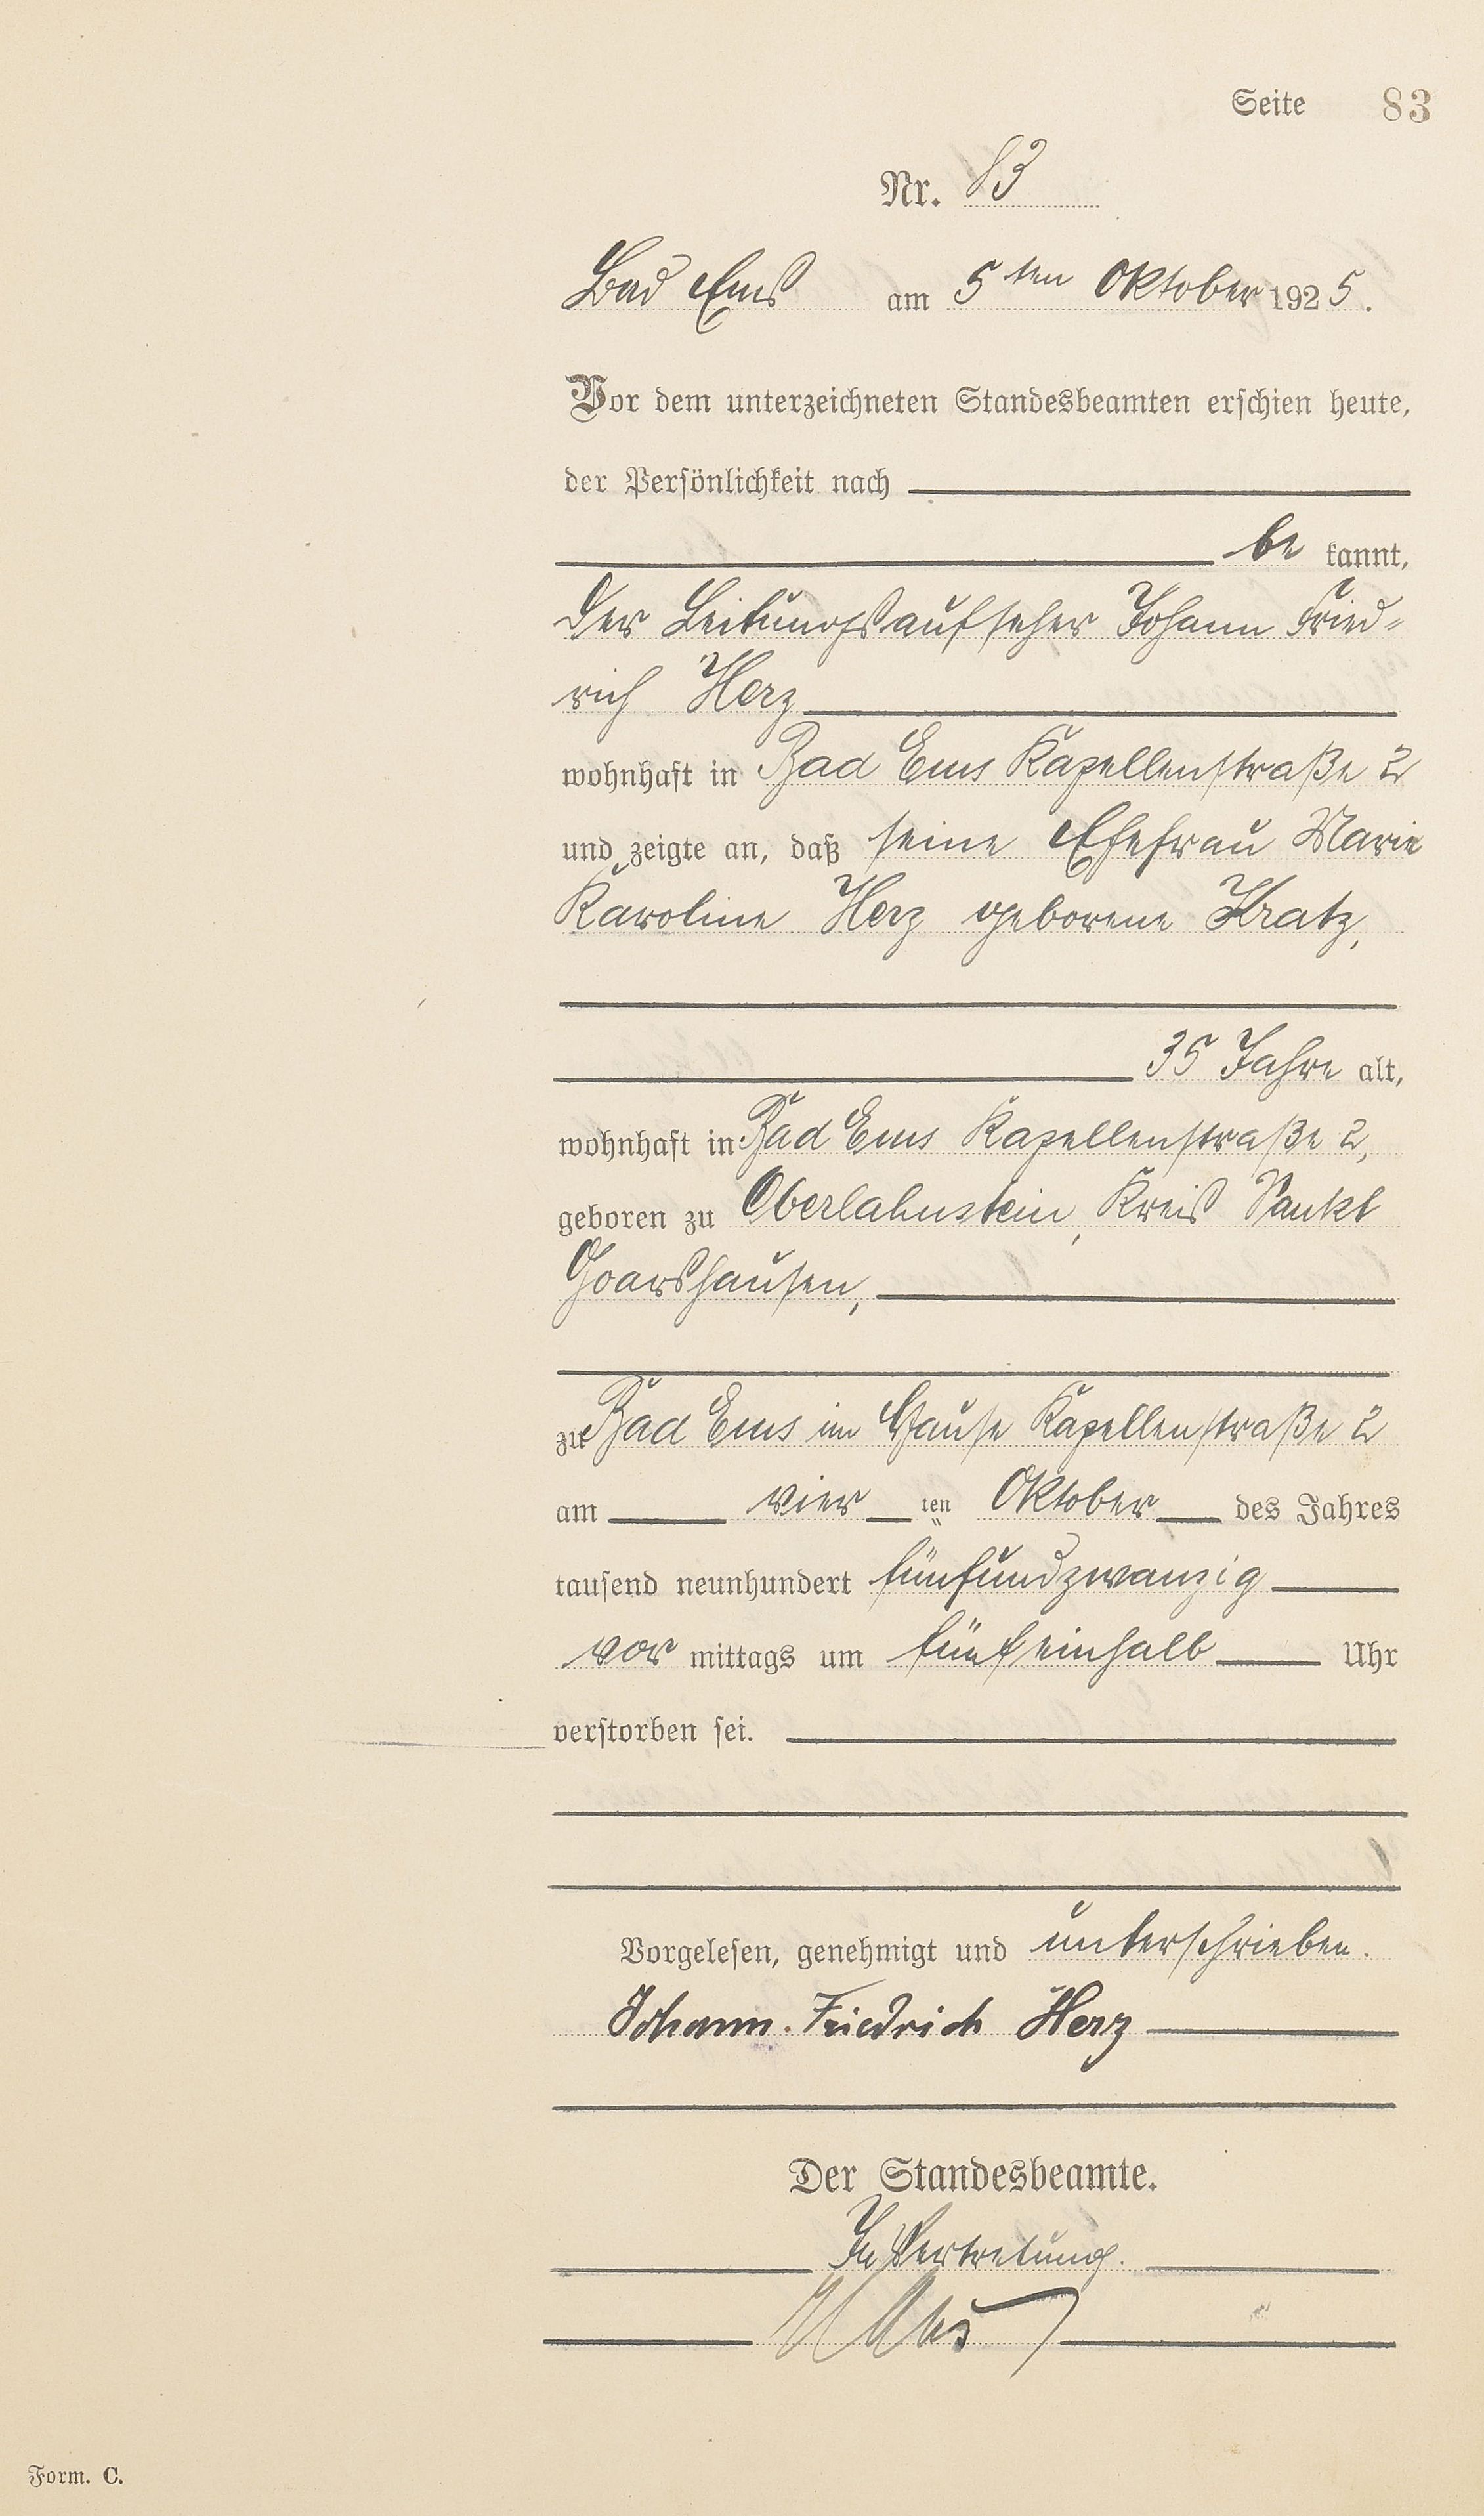 Seite 83
Nr. 83
Bad Ems am 5ten Oktober 1925.
Vor dem unterzeichneten Standesbeamten erschien heute,
der Persönlichkeit nach
be kannt,
der Leitungsaufseher Johann Fried-
rich Herz
wohnhaft in Bad Ems Kapellenstraße 2
und zeigte an, daß seine Ehefrau Marie
Karoline Herz geborene Kratz,
35 Jahre alt,
wohnhaft in Bad Ems Kapellenstraße 2,
geboren zu Oberlahnstein, Kreis Sankt
Goarshausen,
zu Bad Ems im Hause Kapellenstraße 2
am vier ten Oktober des Jahres
tausend neunhundert fünfundzwanzig
vor mittags um fünfeinhalb Uhr
verstorben sei.
Vorgelesen, genehmigt und unterschrieben.
Johann. Friedrich Herz
Der Standesbeamte.
In Vertretung.
Form. C.